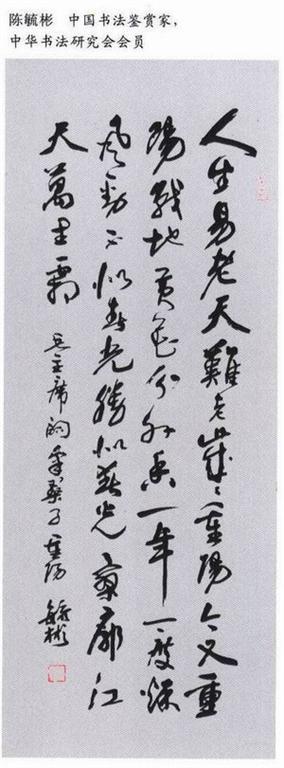 陈毓彬 中国书法鉴赏家，
中华书法研究会会员
人生易老天難老歲々重陽今又重
陽戰地黄花分外香一年一度秋
風勁不似春光勝似春光寥廓江
天萬里霜 毛主席詞采桑子重陽 毓彬